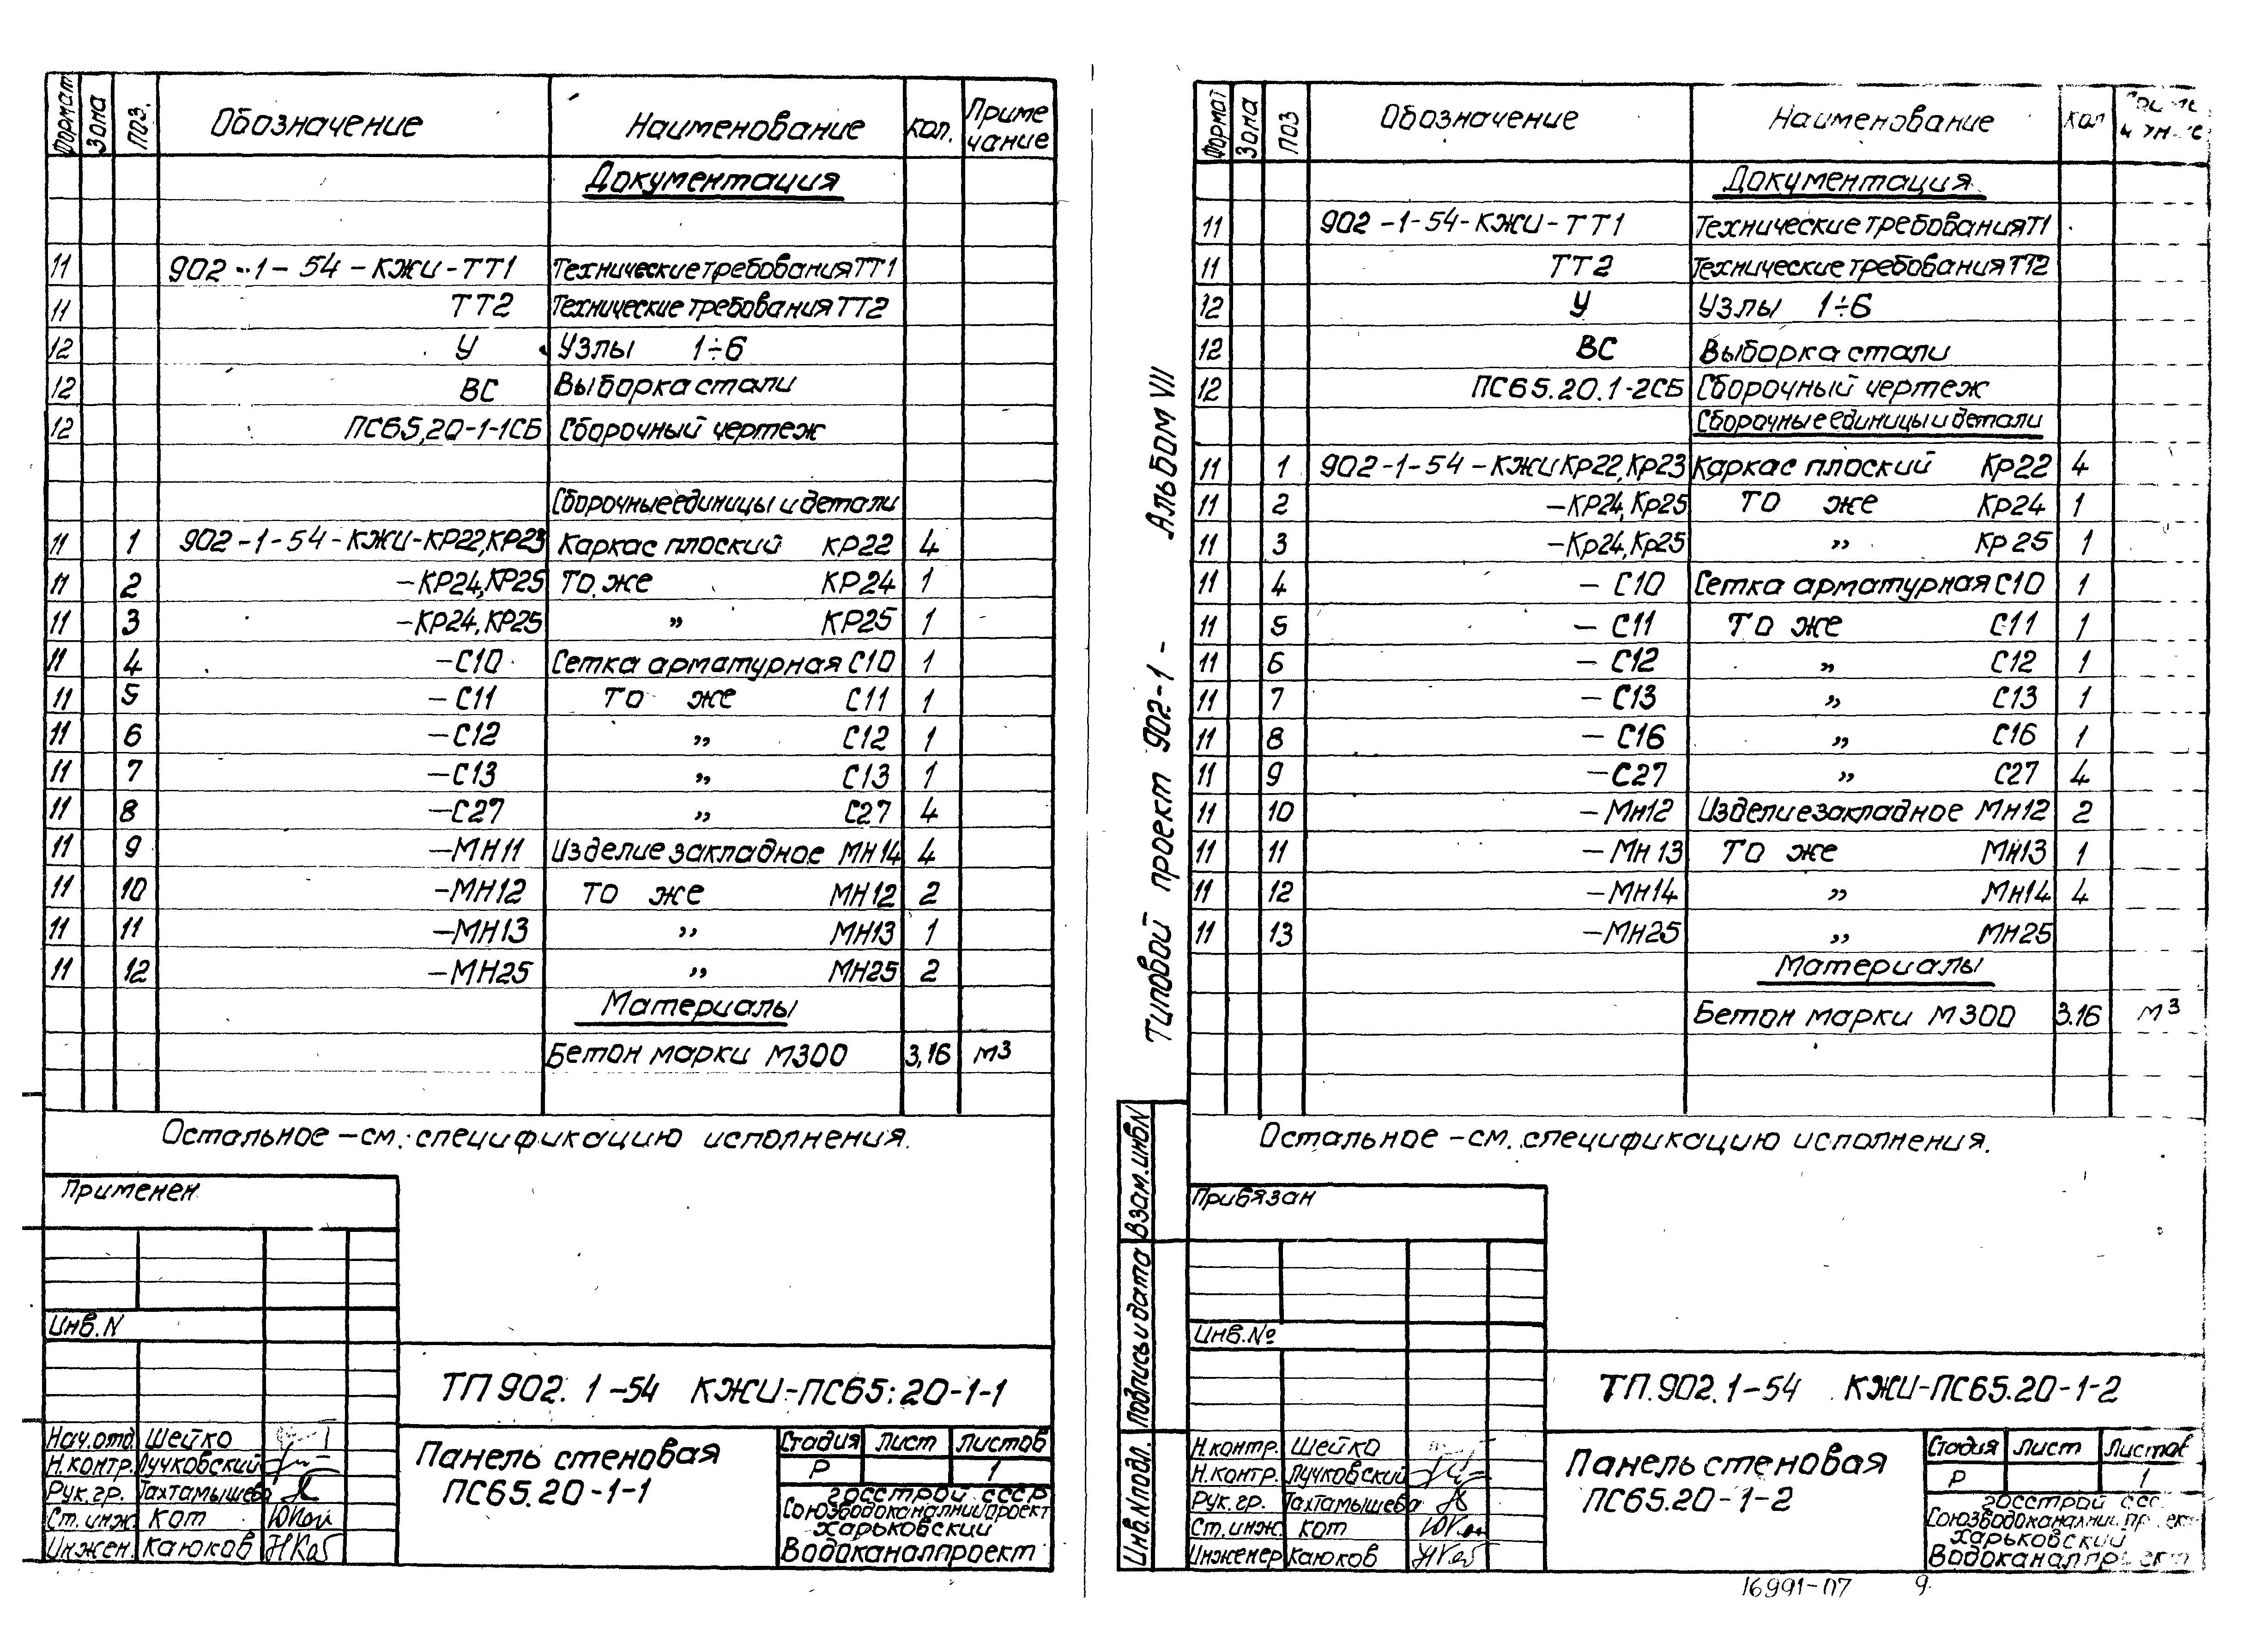 Формат Зона Поз. Обозначение Наименование Кол. Приме чание
Документация
11 902-1-54-КЖИ-ТТ1 Технические требования ТТ1
11 ТТ2 Технические требования ТТ2
12 У Узлы 1÷6
12 ВС Выборка стали
12 ПС65,20-1-1СБ Сборочный чертеж
Сборочные единицы и детали
11 1 902-1-54-КЖИ-КР22,КР23 Каркас плоский КР22 4
11 2 -КР24,КР25 То же КР24 1
11 3 -КР24,КР25 " КР25 1
11 4 -С10 Сетка арматурная С10 1
11 5 -С11 То же С11 1
11 6 -С12 " С12 1
11 7 -С13 " С13 1
11 8 -С27 " С27 4
11 9 -МН11 Изделие закладное МН14 4
11 10 -МН12 То же МН12 2
11 11 -МН13 " МН13 1
11 12 -МН25 " МН25 2
Материалы
Бетон марки М300 3,16 м3
Остальное - см. спецификацию исполнения.
Применен
Инв.N
ТП 902.1-54 КЖИ-ПС65:20-1-1
Нач.отд. Шейко
Н.контр. Лучковский
Рук.гр. Тахтамышева
Ст.инж. Кот
Инжен. Каюков
Панель стеновая
ПС65.20-1-1
Стадия Лист Листов
Р 1
Госстрой СССР
Союзводоканалниипроект
Харьковский
Водоканалпроект
Типовой проект 902-1- Альбом VII
Взам.инвN
Подпись и дата
Инв.Nподл.
Формат Зона Поз Обозначение Наименование Кол
Документация
11 902-1-54-КЖИ-ТТ1 Технические требования Т1
11 ТТ2 Технические требования ТТ2
12 У Узлы 1÷6
12 ВС Выборка стали
12 ПС65.20.1-2СБ Сборочный чертеж
Сборочные единицы и детали
11 1 902-1-54-КЖИ Кр22,Кр23 Каркас плоский Кр22 4
11 2 -КР24,Кр25 То же Кр24 1
11 3 -Кр24,Кр25 " Кр25 1
11 4 -С10 Сетка арматурная С10 1
11 5 -С11 То же С11 1
11 6 -С12 " С12 1
11 7 -С13 " С13 1
11 8 -С16 " С16 1
11 9 -С27 " С27 4
11 10 -Мн12 Изделие закладное Мн12 2
11 11 -Мн13 То же Мн13 1
11 12 -Мн14 " Мн14 4
11 13 -Мн25 " Мн25
Материалы
Бетон марки М300 3.16 м3
Остальное - см. спецификацию исполнения.
Привязан
Инв.№
ТП.902.1-54 КЖИ-ПС65.20-1-2
Н.контр. Шейко
Н.контр. Лучковский
Рук.гр. Тахтамышева
Ст.инж. Кот
Инженер Каюков
Панель стеновая
ПС65.20-1-2
Стадия Лист Листов
Р 1
Госстрой ССС
Союзводоканалниипроект
Харьковский
Водоканалпроект
16991-07 9